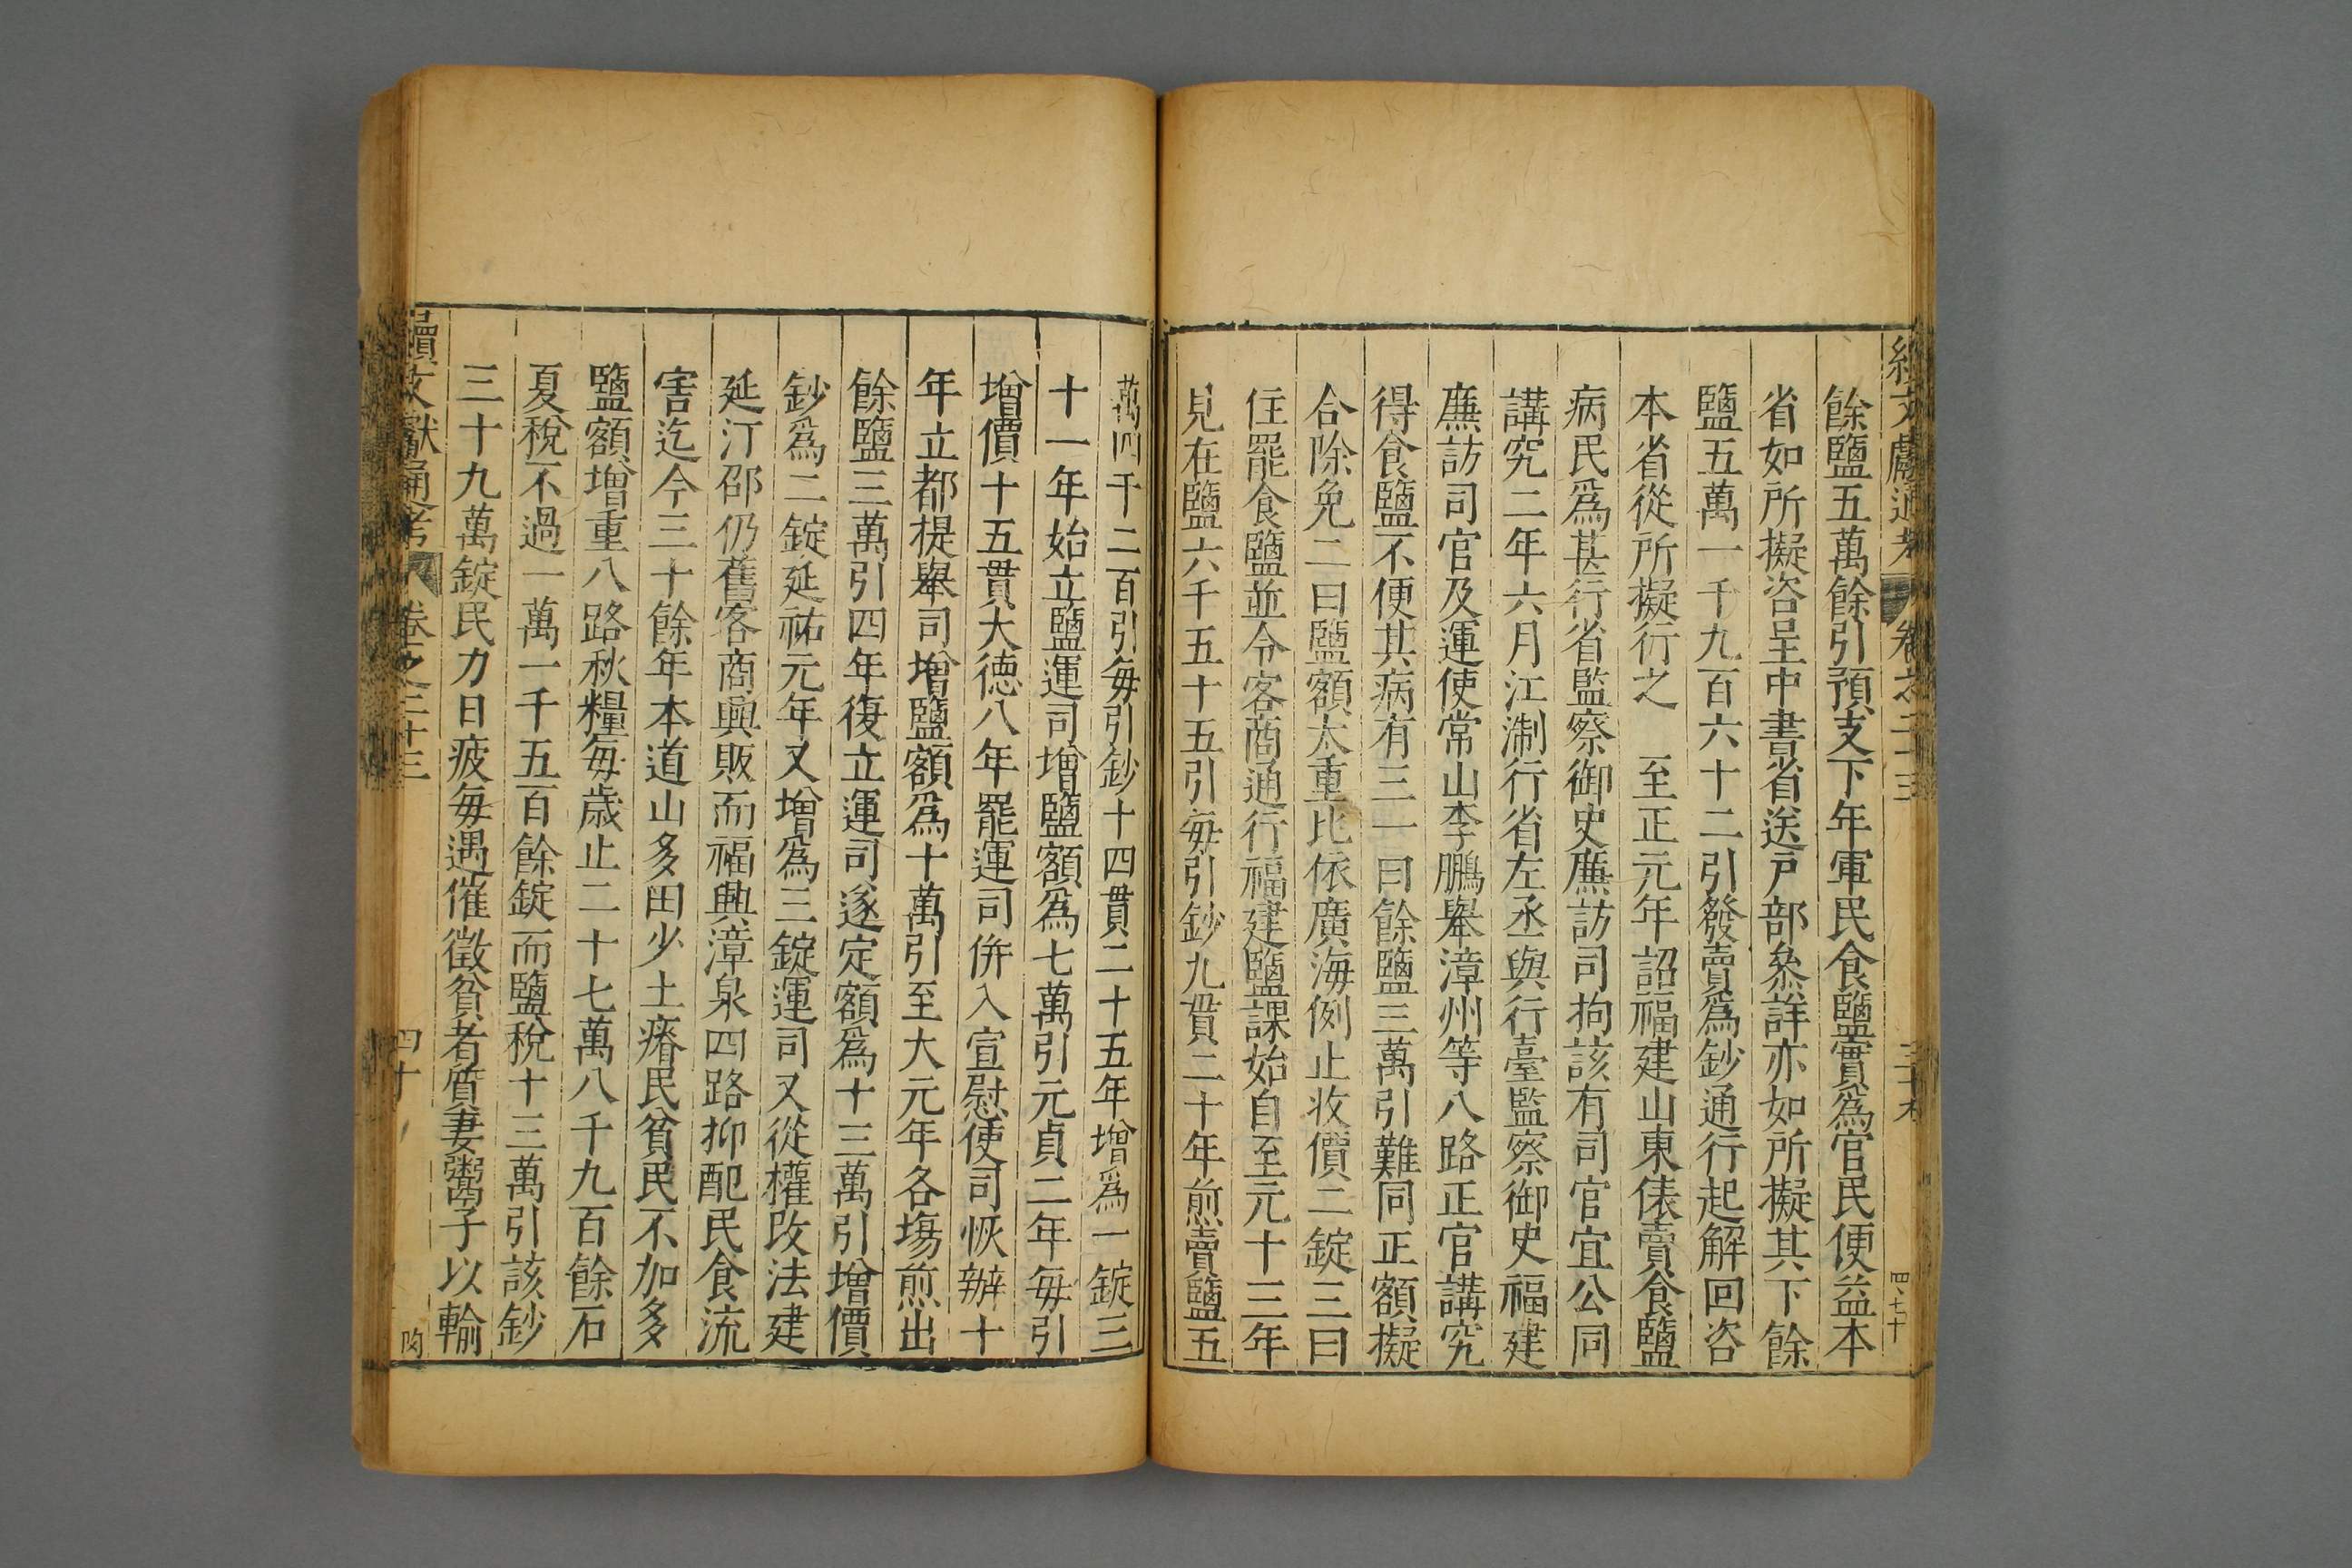 續文獻通考 卷之二十三
餘鹽五萬餘引預支下年軍民食鹽實爲官民便益本
省如所擬咨呈中書省送戸部叅詳亦如所擬其下餘
鹽五萬一千九百六十二引發賣爲鈔通行起解回咨
本省從所擬行之 至正元年詔福建山東俵賣食鹽
病民爲甚行省監察御史廉訪司拘該有司官宜公同
講究二年六月江淛行省左丞與行臺監察御史福建
廉訪司官及運使常山李鵬舉漳州等八路正官講究
得食鹽不便其病有三一曰餘鹽三萬引難同正額擬
合除免二曰鹽額太重比依廣海例止收價二錠三曰
住罷食鹽並令客商通行福建鹽課始自至元十三年
見在鹽六千五十五引每引鈔九貫二十年煎賣鹽五
萬四千二百引每引鈔十四貫二十五年增爲一錠三
十一年始立鹽運司增鹽額爲七萬引元貞二年每引
增價十五貫大德八年罷運司併入宣慰使司恢辦十
年立都提舉司增鹽額爲十萬引至大元年各塲煎出
餘鹽三萬引四年復立運司遂定額爲十三萬引增價
鈔爲二錠延祐元年又增爲三錠運司又從權改法建
延汀邵仍舊客商興販而福興漳泉四路抑配民食流
害迄今三十餘年本道山多田少土瘠民貧民不加多
鹽額增重八路秋糧每歳止二十七萬八千九百餘石
夏稅不過一萬一千五百餘錠而鹽稅十三萬引該鈔
三十九萬錠民力日疲每遇催徵貧者質妻鬻子以輸
續文獻通考 卷之二十三 四十